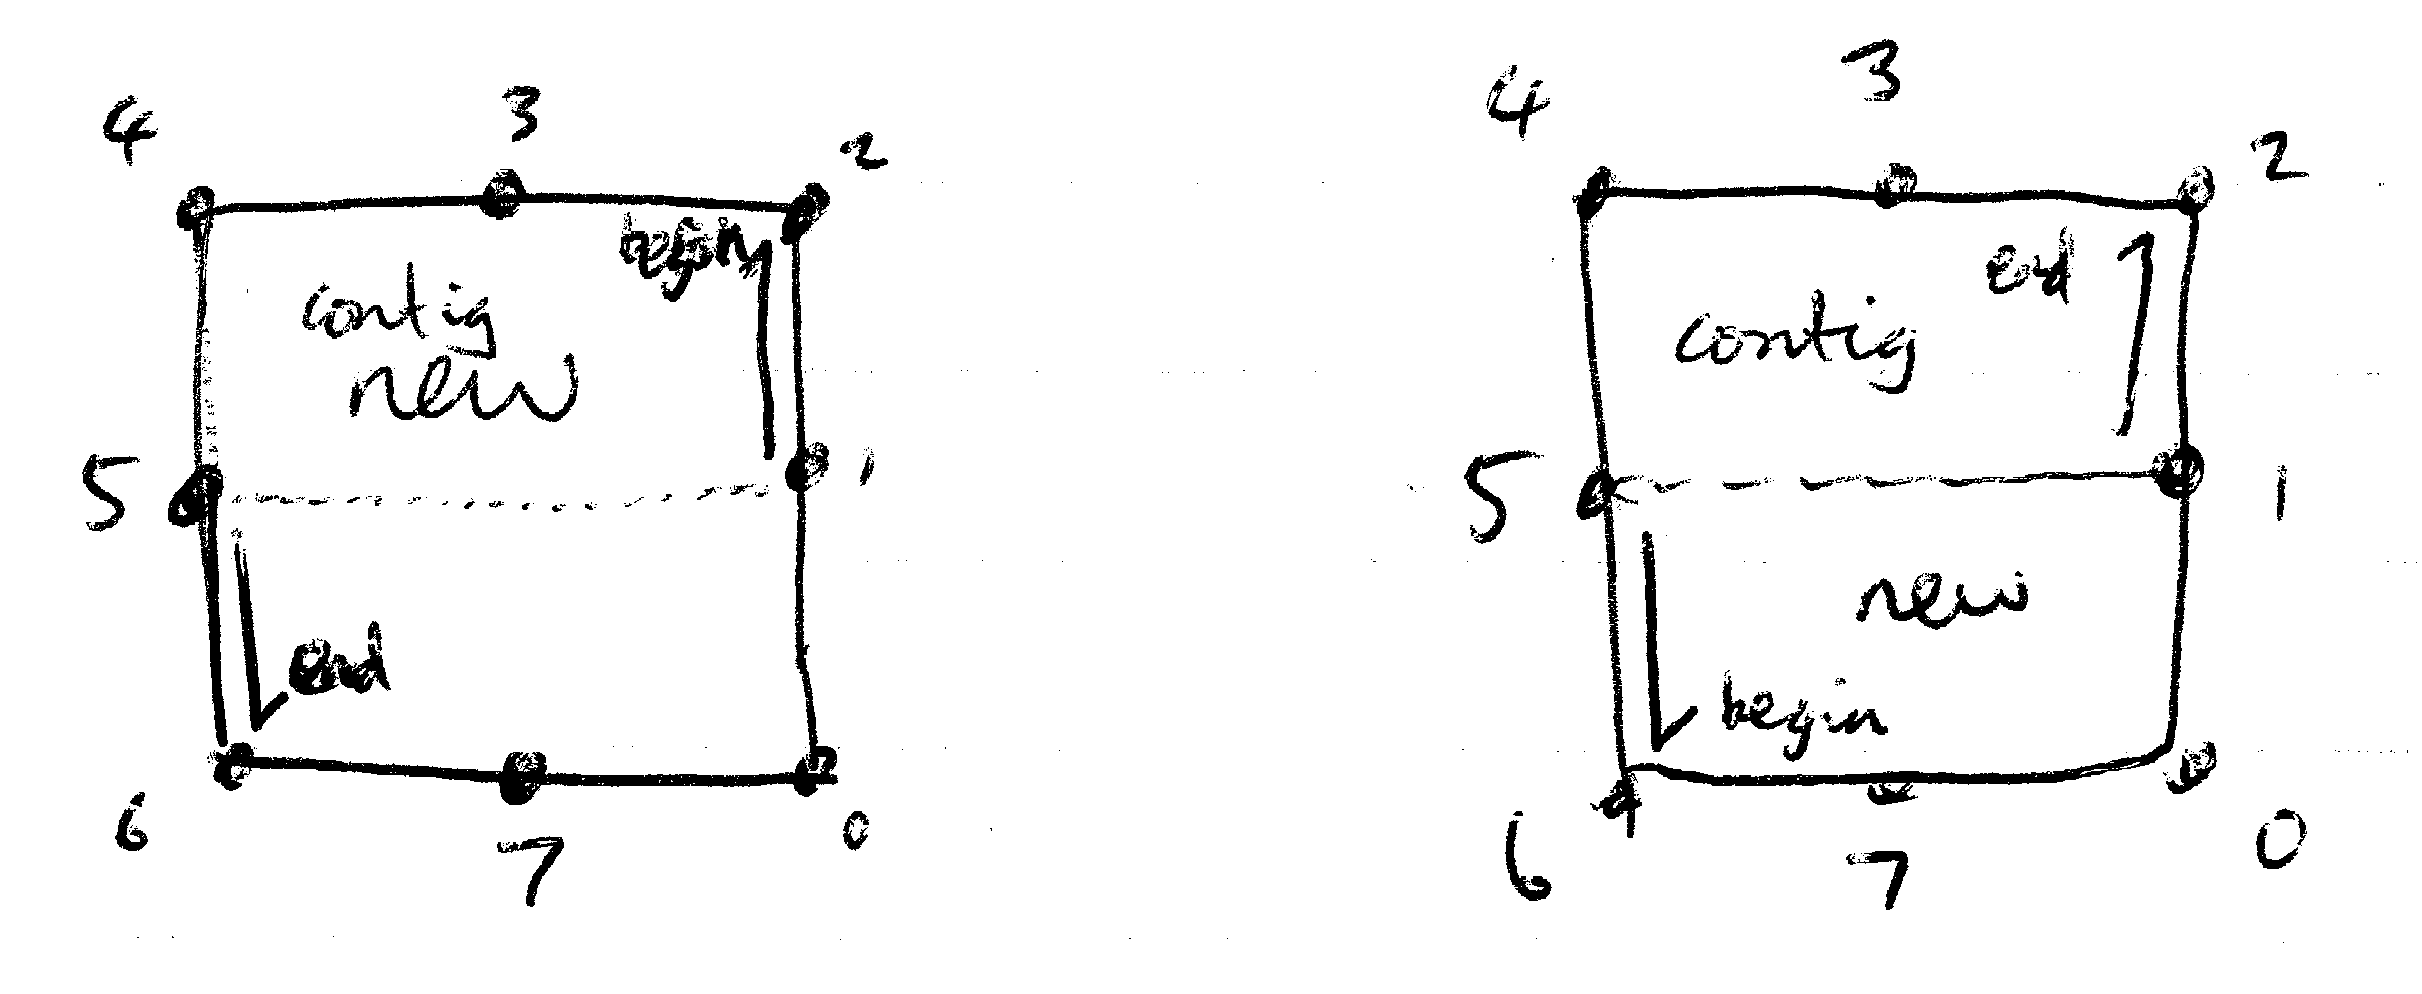 4 3 2
begin
contig
new
5 1
end
6 7 0
4 3 2
end
contig
5 1
new
begin
6 7 0